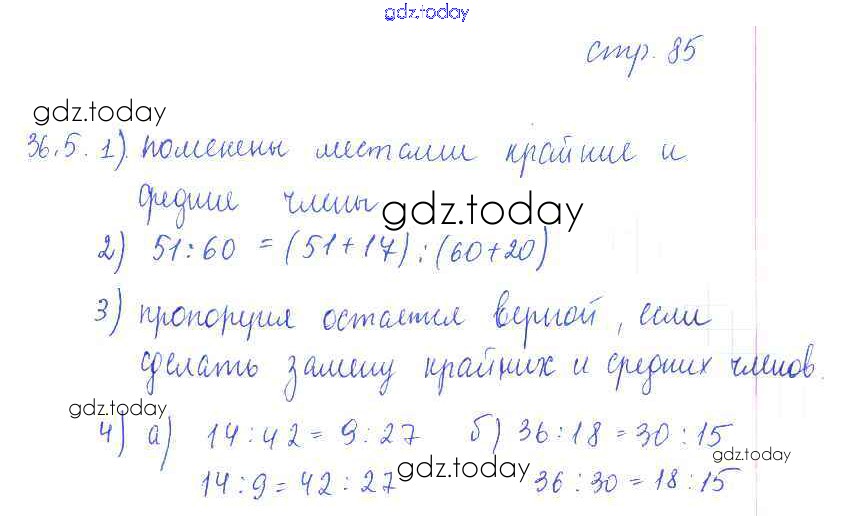 gdz.today
стр. 85
gdz.today
36.5. 1) поменены местами крайние и
средние члены
gdz.today
2) 51:60 = (51+17):(60+20)
3) пропорция остается верной, если
сделать замену крайних и средних членов.
gdz.today
4) а) 14:42 = 9:27 б) 36:18 = 30:15
gdz.today
14:9 = 42:27 36:30 = 18:15
gdz.today